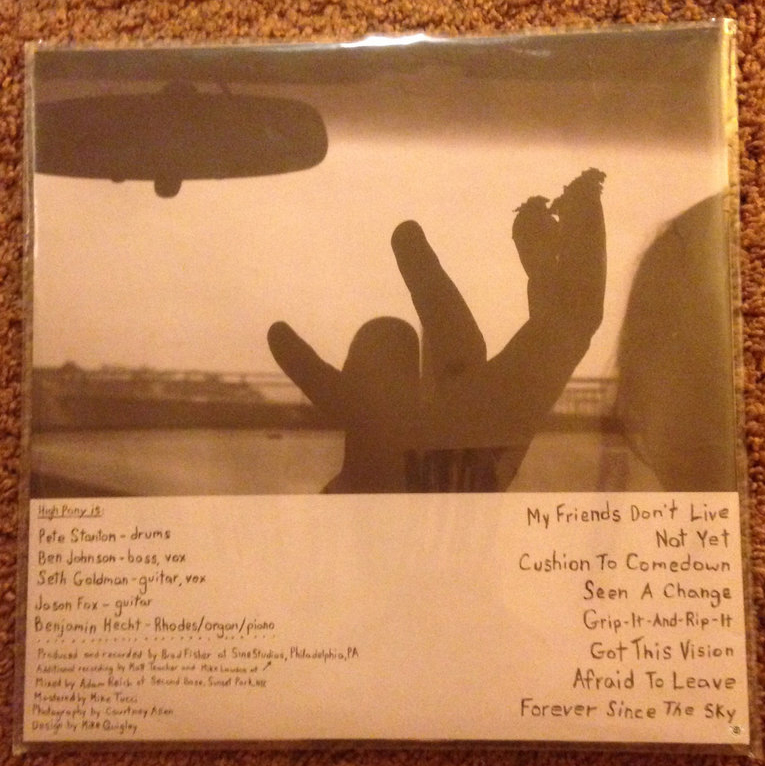 High Pony is:
Pete Stanton - drums
Ben Johnson - bass, vox
Seth Goldman - guitar, vox
Jason Fox - guitar
Benjamin Hecht - Rhodes/organ/piano
Produced and recorded by Brad Fisher at Sine Studios, Philadelphia, PA
Additional recording by Matt Teacher and Mike at
Mixed by Adam Reich at Second Base, Sunset Park,
Mastered by Mike Tucci
Photography by Courtney Allen
Design by Mike Quigley
My Friends Don't Live
Not Yet
Cushion To Comedown
Seen A Change
Grip-It-And-Rip-It
Got This Vision
Afraid To Leave
Forever Since The Sky